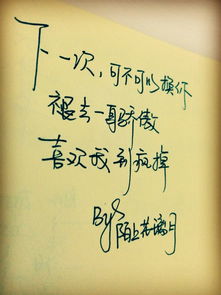 下一次，可不可以换你
褪去一身骄傲
喜欢我到疯掉
By 陌上